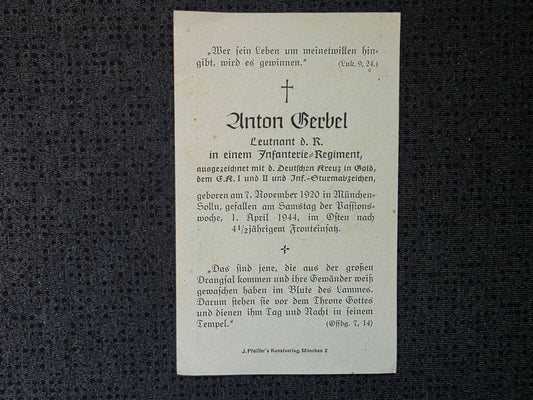 „Wer sein Leben um meinetwillen hin-
gibt, wird es gewinnen.“ (Luk. 9, 24.)
Anton Gerbel
Leutnant d. R.
in einem Infanterie-Regiment,
ausgezeichnet mit d. Deutschen Kreuz in Gold,
dem E.K. I und II und Inf.-Sturmabzeichen,
geboren am 7. November 1920 in München-
Solln, gefallen am Samstag der Passions-
woche, 1. April 1944, im Osten nach
4 1/2 jährigem Fronteinsatz.
„Das sind jene, die aus der großen
Drangsal kommen und ihre Gewänder weiß
gewaschen haben im Blute des Lammes.
Darum stehen sie vor dem Throne Gottes
und dienen ihm Tag und Nacht in seinem
Tempel.“ (Offbg. 7, 14)
J. Pfeiffer's Kunstverlag, München 2